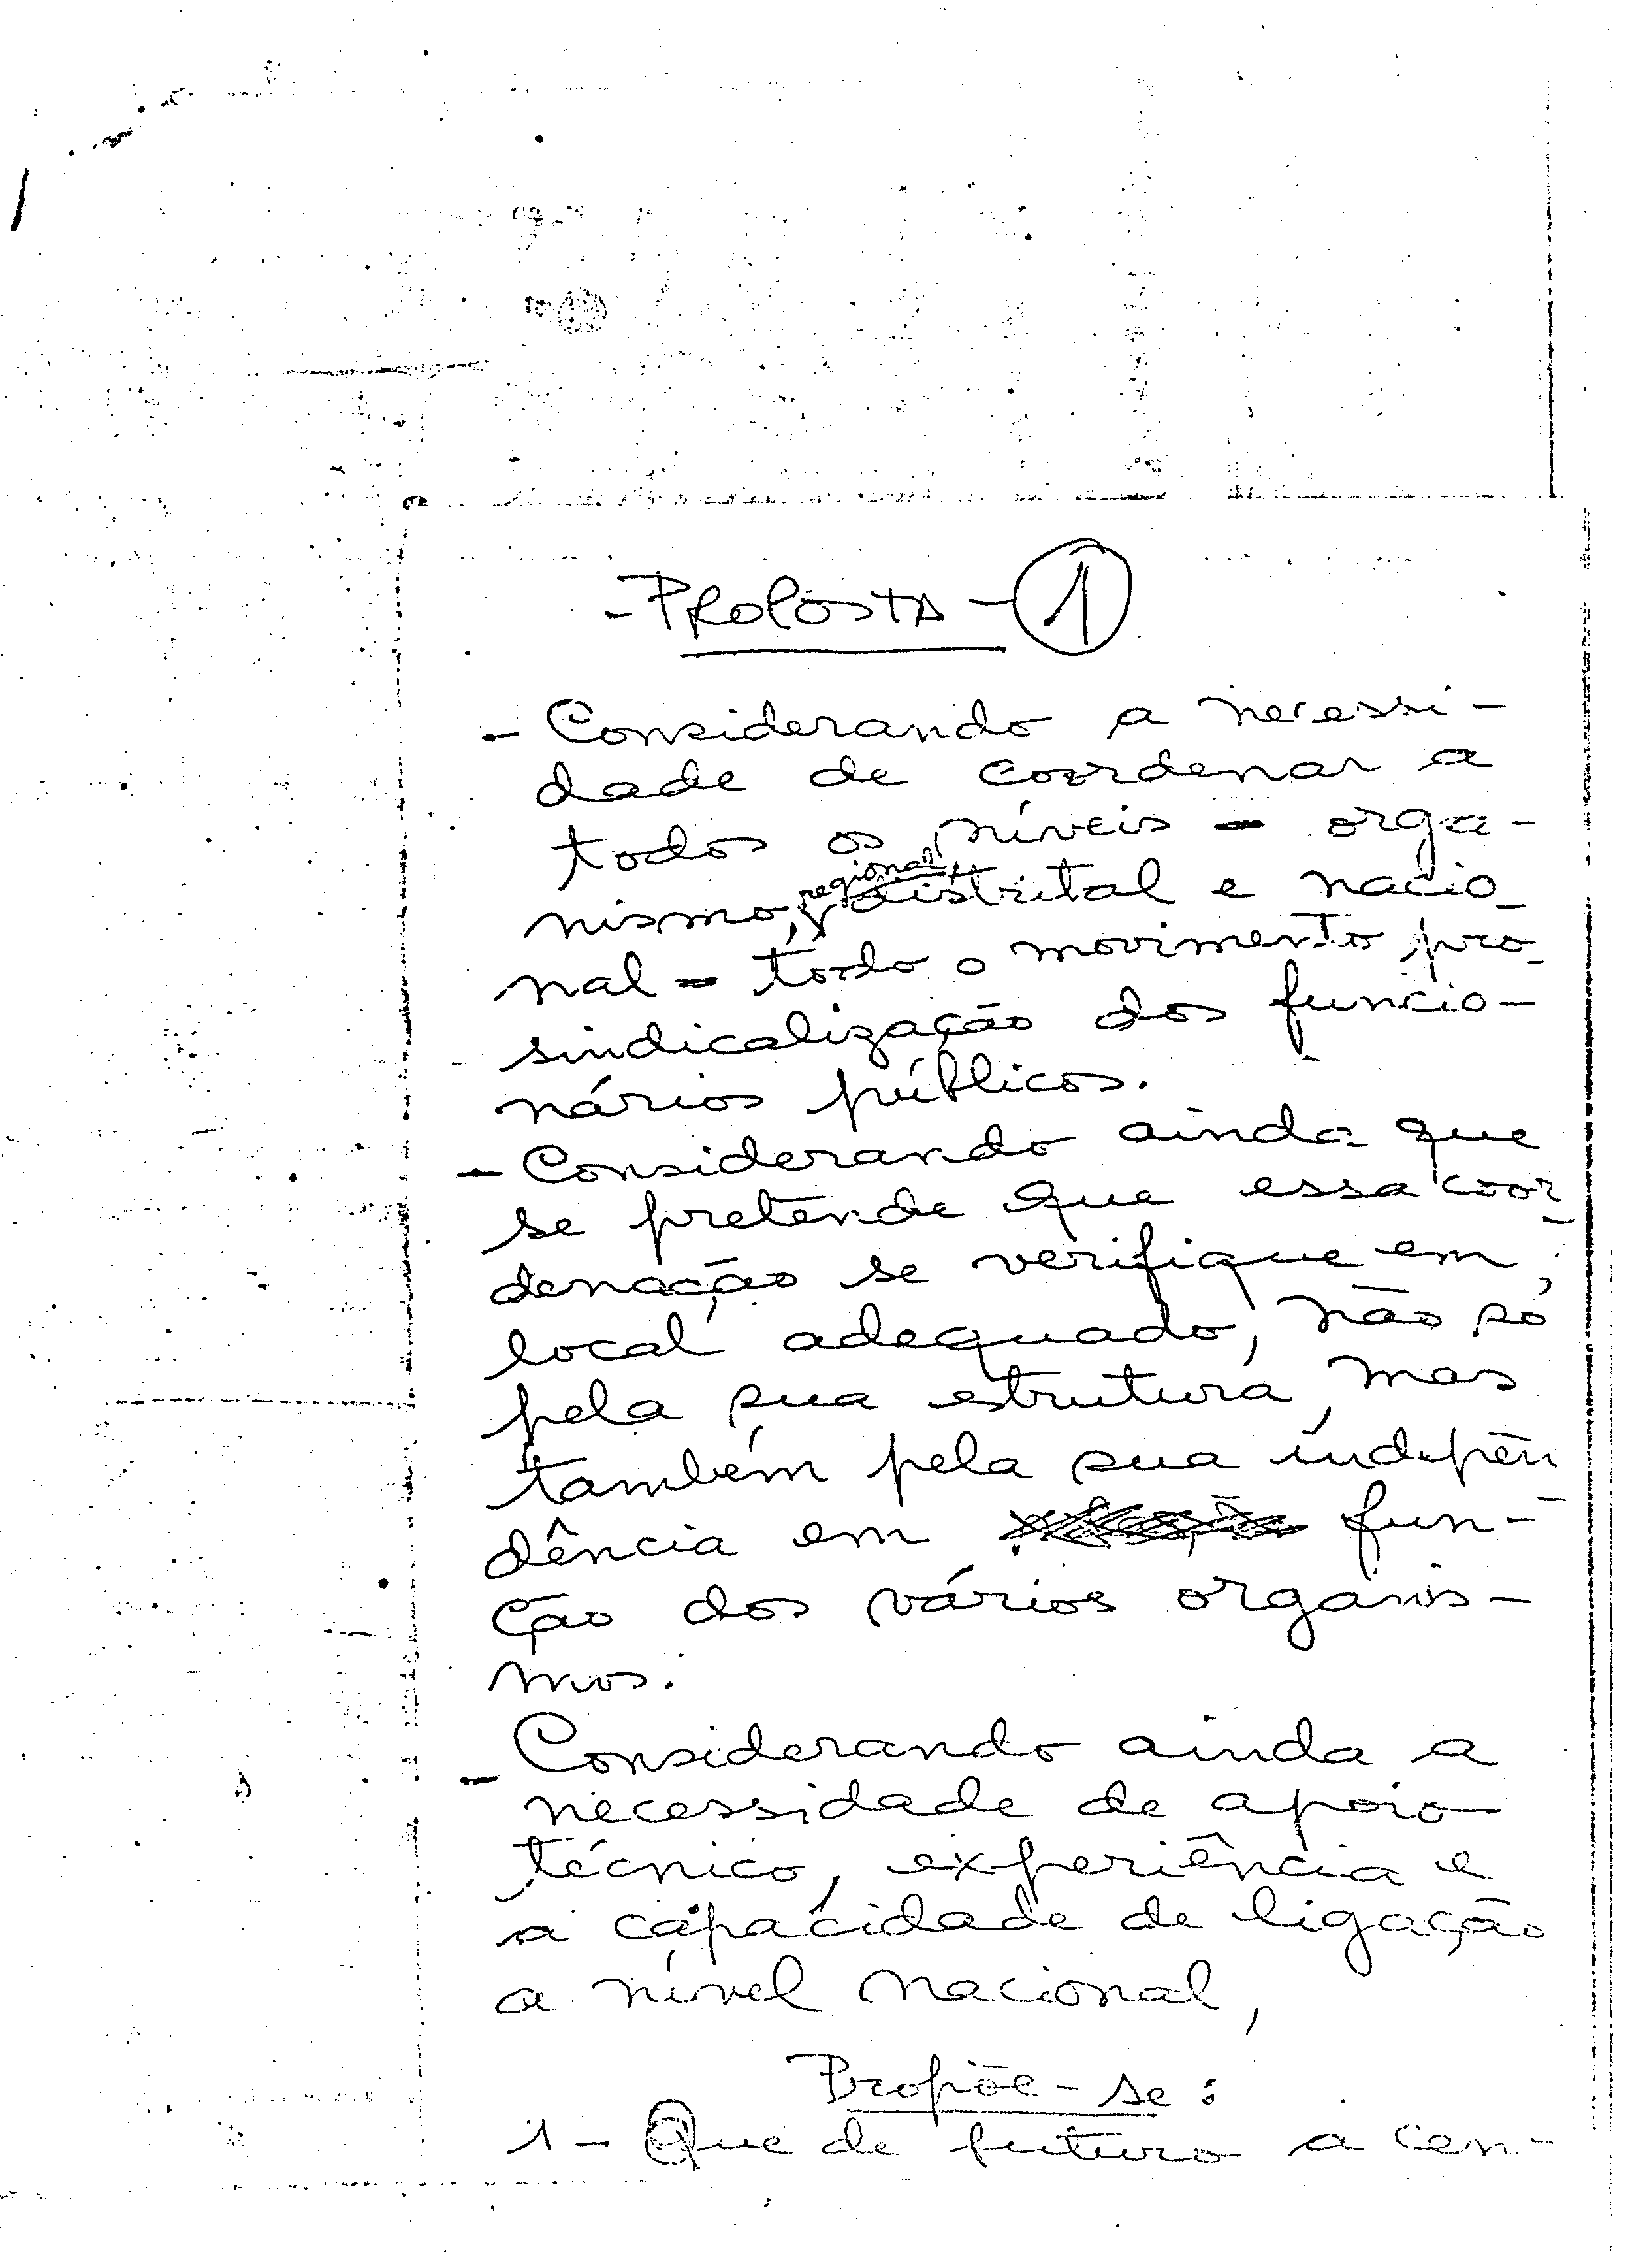 - PROPOSTA - 1
- Considerando a necessi-
dade de coordenar a
todos os níveis - orga-
nismo, regional, distrital e nacio-
nal - todo o movimento pro-
sindicalização dos funcio-
nários públicos.
- Considerando ainda que
se pretende que essa coor-
denação se verifique em
local adequado, não só
pela sua estrutura, mas
também pela sua indepen-
dência em fun-
ção dos vários organis-
mos.
- Considerando ainda a
necessidade de apoio
técnico, experiência e
a capacidade de ligação
a nível nacional,
Propõe-se:
1 - Que de futuro a cen-